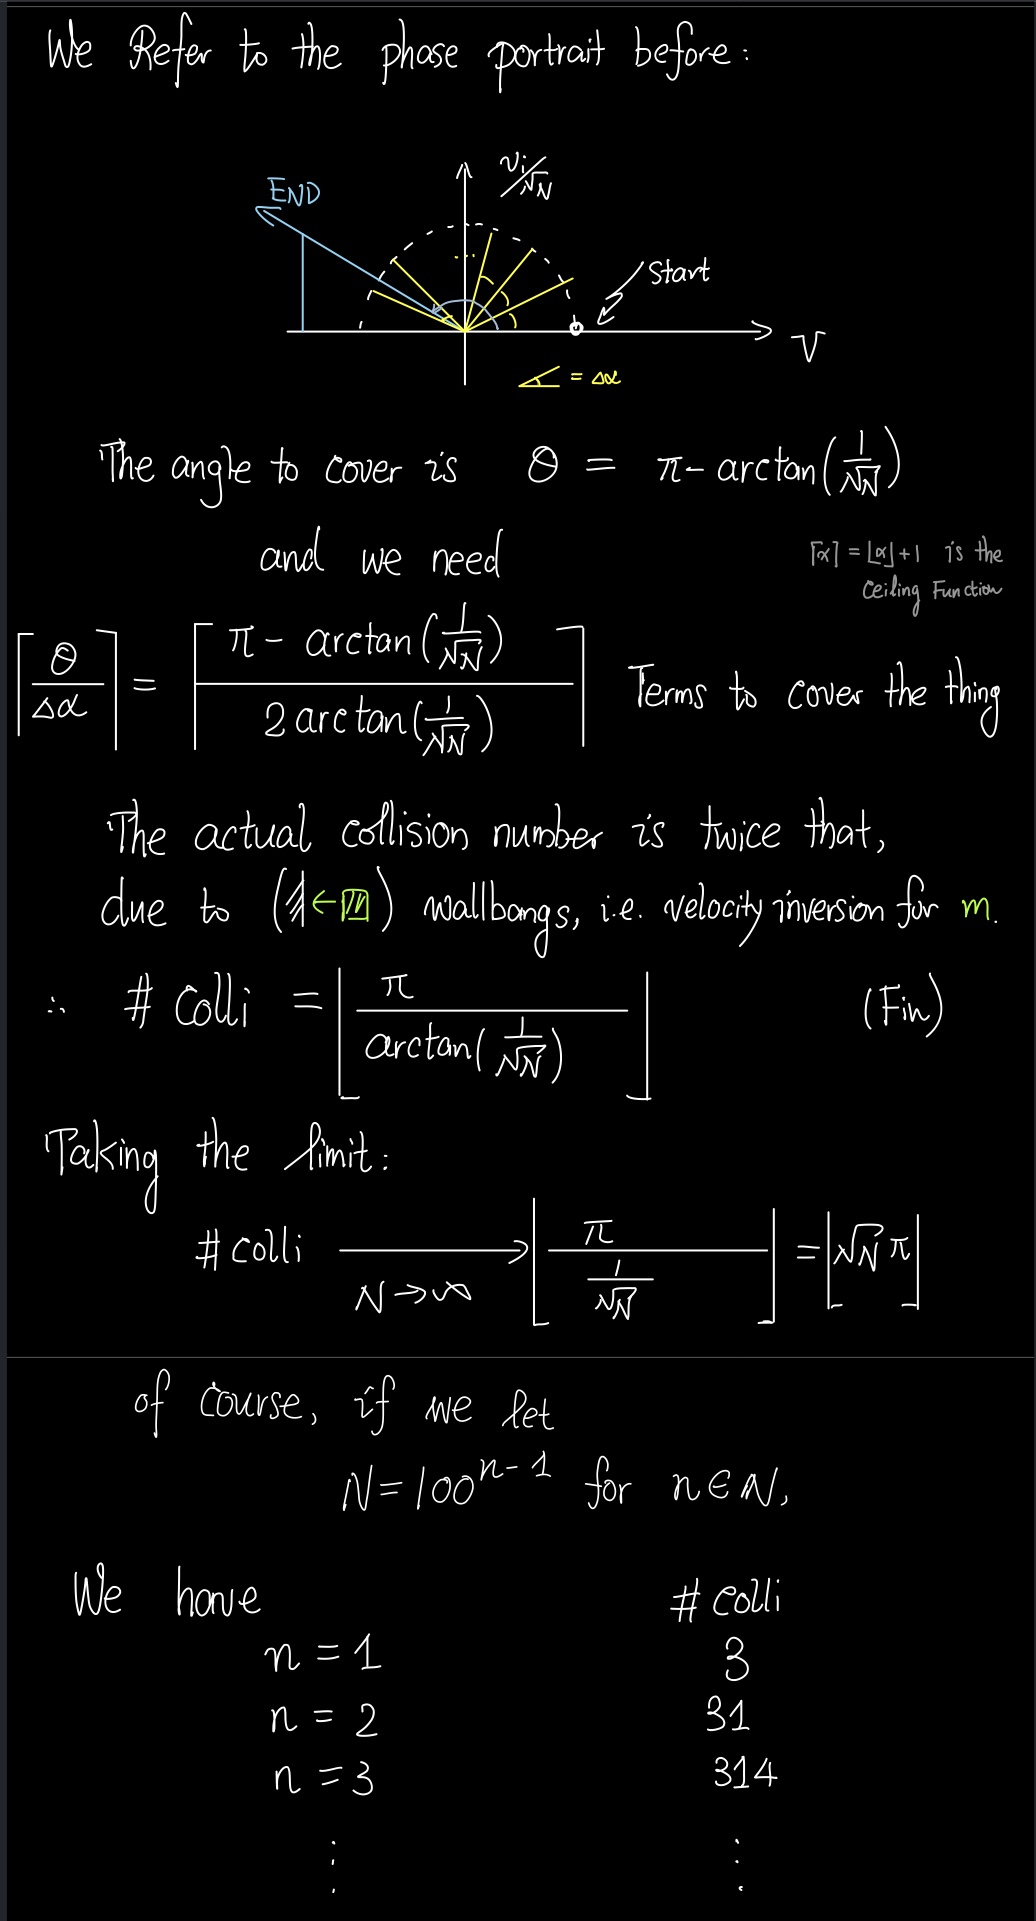 We Refer to the phase portrait before:
v_i/√N
END
Start
...
V
∠ = Δα
The angle to cover is θ = π - arctan(1/√N)
and we need
⌈x⌉ = ⌊x⌋ + 1 is the
Ceiling Function
⌈θ/Δα⌉ = ⌈(π - arctan(1/√N))/(2 arctan(1/√N))⌉ Terms to cover the thing
The actual collision number is twice that,
due to ( ← m ) wallbangs, i.e. velocity inversion for m.
∴ # Colli = ⌊π/arctan(1/√N)⌋ (Fin)
Taking the limit:
# colli →_{N→∞} ⌊π/(1/√N)⌋ = ⌊√N π⌋
of course, if we let
N = 100^{n-1} for n ∈ ℕ,
We have # colli
n = 1 3
n = 2 31
n = 3 314
⋮ ⋮